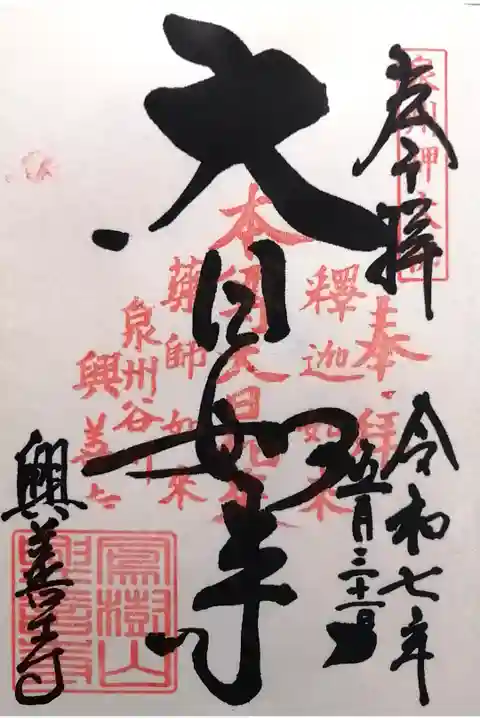 奉拜
令和七年
五月三十一日
釋迦如来
大日如来
本尊大日如来
藥師如来
泉州谷川
興善寺
興善寺
鳳樹山
興善寺